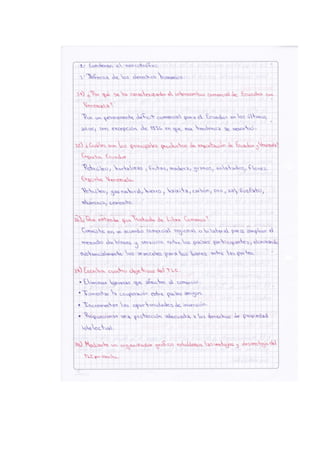 2. Condenan al narcotráfico.
3. Defensa de los derechos humanos.
31) ¿Por qué se ha caracterizado el intercambio comercial de Ecuador con
Venezuela?
Por un permanente déficit comercial para el Ecuador en los últimos
años, con excepción de 1996 en que esa tendencia se revertió.
32) ¿Cuáles son los principales productos de exportación de Ecuador y Venezuela?
Exporta Ecuador
Petróleo, hortalizas, frutas, madera, granos, enlatados, flores.
Exporta Venezuela
Petróleo, gas natural, hierro, bauxita, carbón, oro, zinc, fosfato,
aluminio, cemento.
33) ¿Qué entiende por Tratado de Libre Comercio?
Consiste en un acuerdo comercial regional o bilateral para ampliar el
mercado de bienes y servicios entre los países participantes, eliminando
sustancialmente los aranceles para los bienes entre las partes.
34) Escriba cuatro objetivos del TLC.
• Eliminar barreras que afecten al comercio.
• Fomentar la cooperación entre países amigos.
• Incrementar las oportunidades de inversión.
• Proporcionar una protección adecuada a los derechos de propiedad
intelectual.
35) Mediante un organizador gráfico establezca las ventajas y desventajas del
TLC en